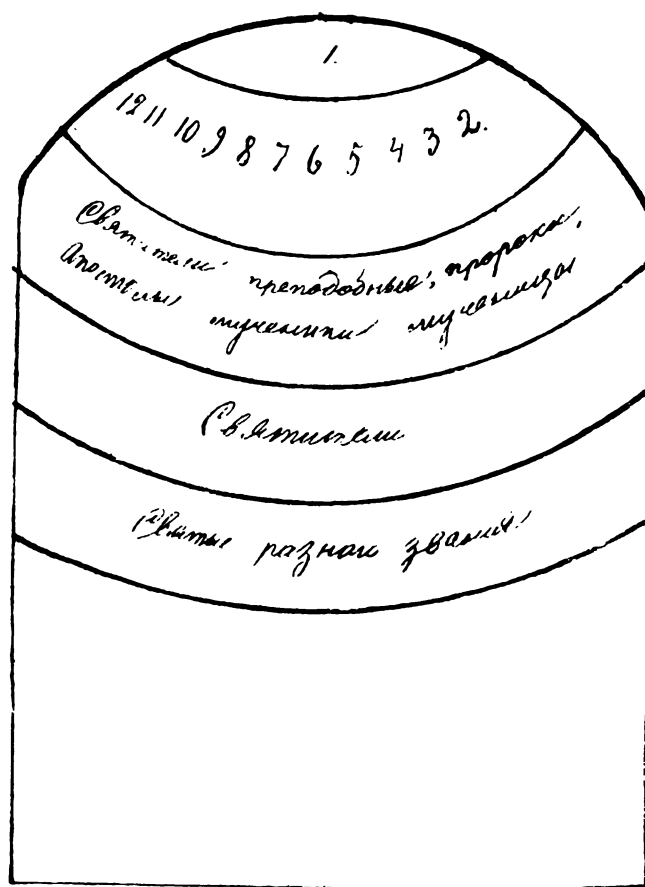 1.
12 11 10 9 8 7 6 5 4 3 2.
Святители преподобные, пророки,
Апостолы мученики мученицы
Святители
Святые разнаго звания